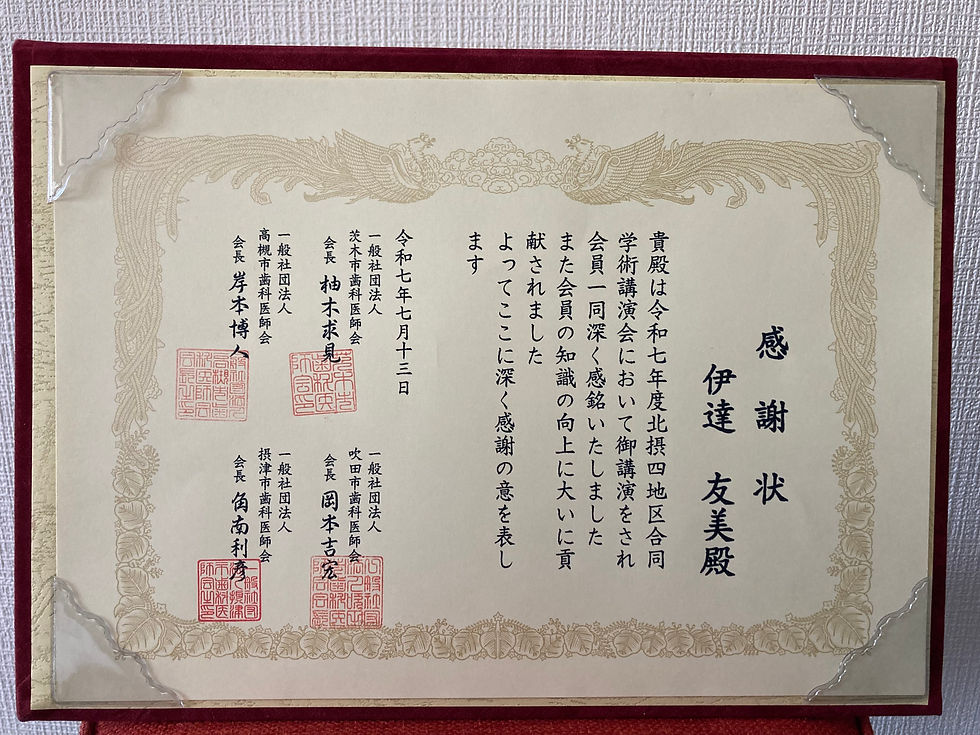 感謝状
伊達 友美殿
貴殿は令和七年度北摂四地区合同
学術講演会において御講演をされ
会員一同深く感銘いたしました
また会員の知識の向上に大いに貢
献されました
よってここに深く感謝の意を表し
ます
令和七年七月十三日
一般社団法人
茨木市歯科医師会
会長 柚木求見
一般社団法人
高槻市歯科医師会
会長 岸本博人
一般社団法人
吹田市歯科医師会
会長 岡本吉宏
一般社団法人
摂津市歯科医師会
会長 角南利彦